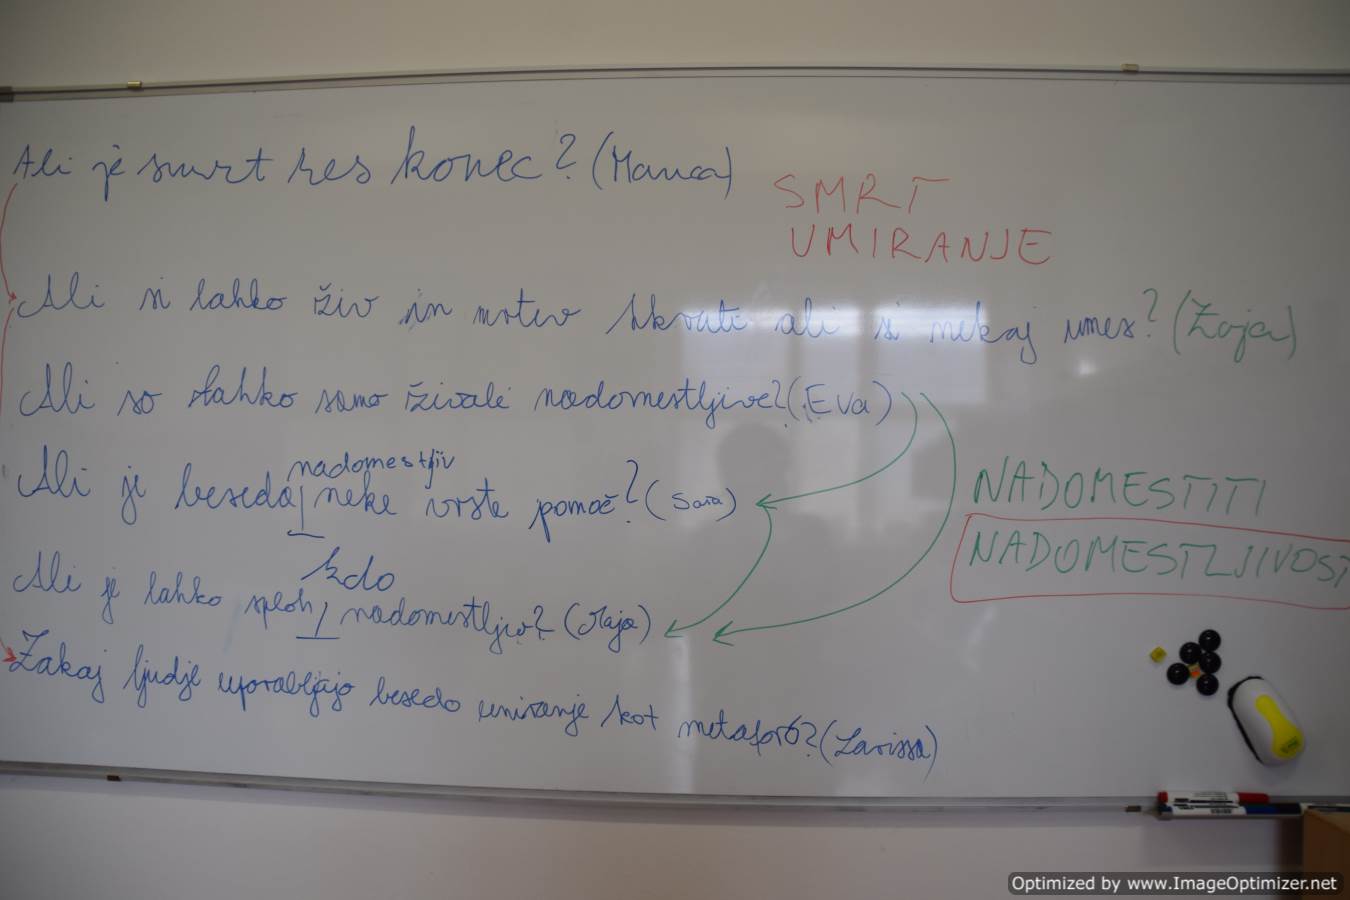 Ali je smrt res konec? (Manca)
SMRT
UMIRANJE
Ali si lahko živ in mrtev hkrati ali si nekaj umes? (Zoja)
Ali so lahko samo živali nadomestljive? (Eva)
nadomestljiv
Ali je beseda neke vrste pomoč? (Sara)
NADOMESTITI
NADOMESTLJIVOST
kdo
Ali je lahko sploh nadomestljiv? (Maja)
Zakaj ljudje uporabljajo besedo umiranje kot metaforo? (Larissa)
Optimized by www.ImageOptimizer.net